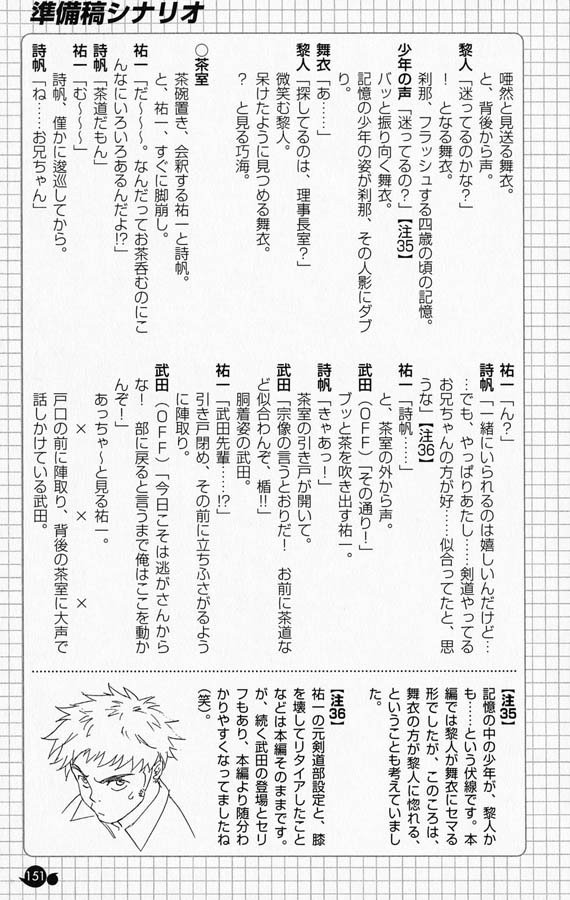 準備稿シナリオ
唖然と見送る舞衣。
と、背後から声。
黎人「迷ってるのかな？」
！　となる舞衣。
刹那、フラッシュする四歳の頃の記憶。
少年の声「迷ってるの？」【注35】
バッと振り向く舞衣。
記憶の少年の姿が刹那、その人影にダブ
り。
舞衣「あ……」
黎人「探してるのは、理事長室？」
微笑む黎人。
呆けたように見つめる舞衣。
？　と見る巧海。
○茶室
茶碗置き、会釈する祐一と詩帆。
と、祐一、すぐに脚崩し。
祐一「だ〜〜〜。なんだってお茶呑むのにこ
んなにいろいろあるんだよ!?」
詩帆「茶道だもん」
祐一「む〜〜〜」
詩帆、僅かに逡巡してから。
詩帆「ね……お兄ちゃん」
祐一「ん？」
詩帆「一緒にいられるのは嬉しいんだけど…
…でも、やっぱりあたし……剣道やってる
お兄ちゃんの方が好……似合ってたと、思
うな」【注36】
祐一「詩帆……」
と、茶室の外から声。
武田（ＯＦＦ）「その通り！」
ブッと茶を吹き出す祐一。
詩帆「きゃあっ！」
茶室の引き戸が開いて。
武田「宗像の言うとおりだ！　お前に茶道な
ど似合わんぞ、楯!!」
胴着姿の武田。
祐一「武田先輩……!?」
引き戸閉め、その前に立ちふさがるよう
に陣取り。
武田（ＯＦＦ）「今日こそは逃がさんから
な！　部に戻ると言うまで俺はここを動か
んぞ！」
あっちゃ〜と見る祐一。
×　×　×
戸口の前に陣取り、背後の茶室に大声で
話しかけている武田。
【注35】
記憶の中の少年が、黎人か
も……という伏線です。本
編では黎人が舞衣にセマる
形でしたが、このころは、
舞衣の方が黎人に惚れる、
ということも考えていまし
た。
【注36】
祐一の元剣道部設定と、膝
を壊してリタイアしたこと
などは本編そのままです。
が、続く武田の登場とセリ
フもあり、本編より随分わ
かりやすくなってましたね
（笑）。
151